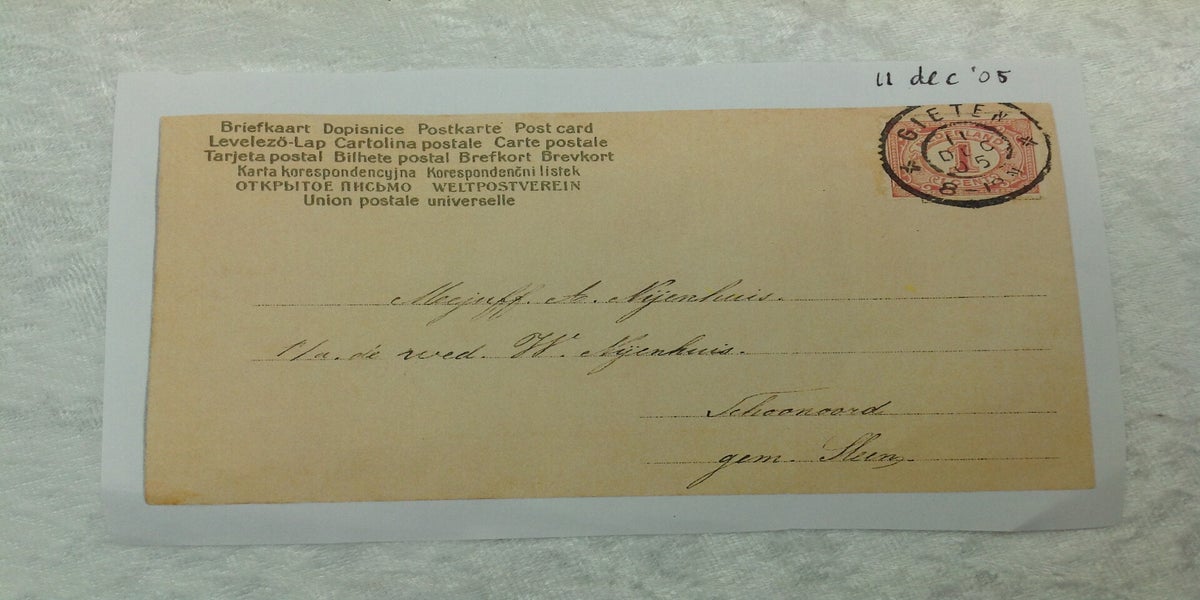 11 dec '05
Briefkaart Dopisnice Postkarte Post card
Levelező-Lap Cartolina postale Carte postale
Tarjeta postal Bilhete postal Brefkort Brevkort
Karta korespondencyjna Korespondenčni listek
ОТКРЫТОЕ ПИСЬМО WELTPOSTVEREIN
Union postale universelle
GIETEN
11
DEC
05
1
CENT
Mejuff. A. Nijenhuis.
p/a. de wed. W. Nijenhuis.
Schoonoord
gem. Sleen.